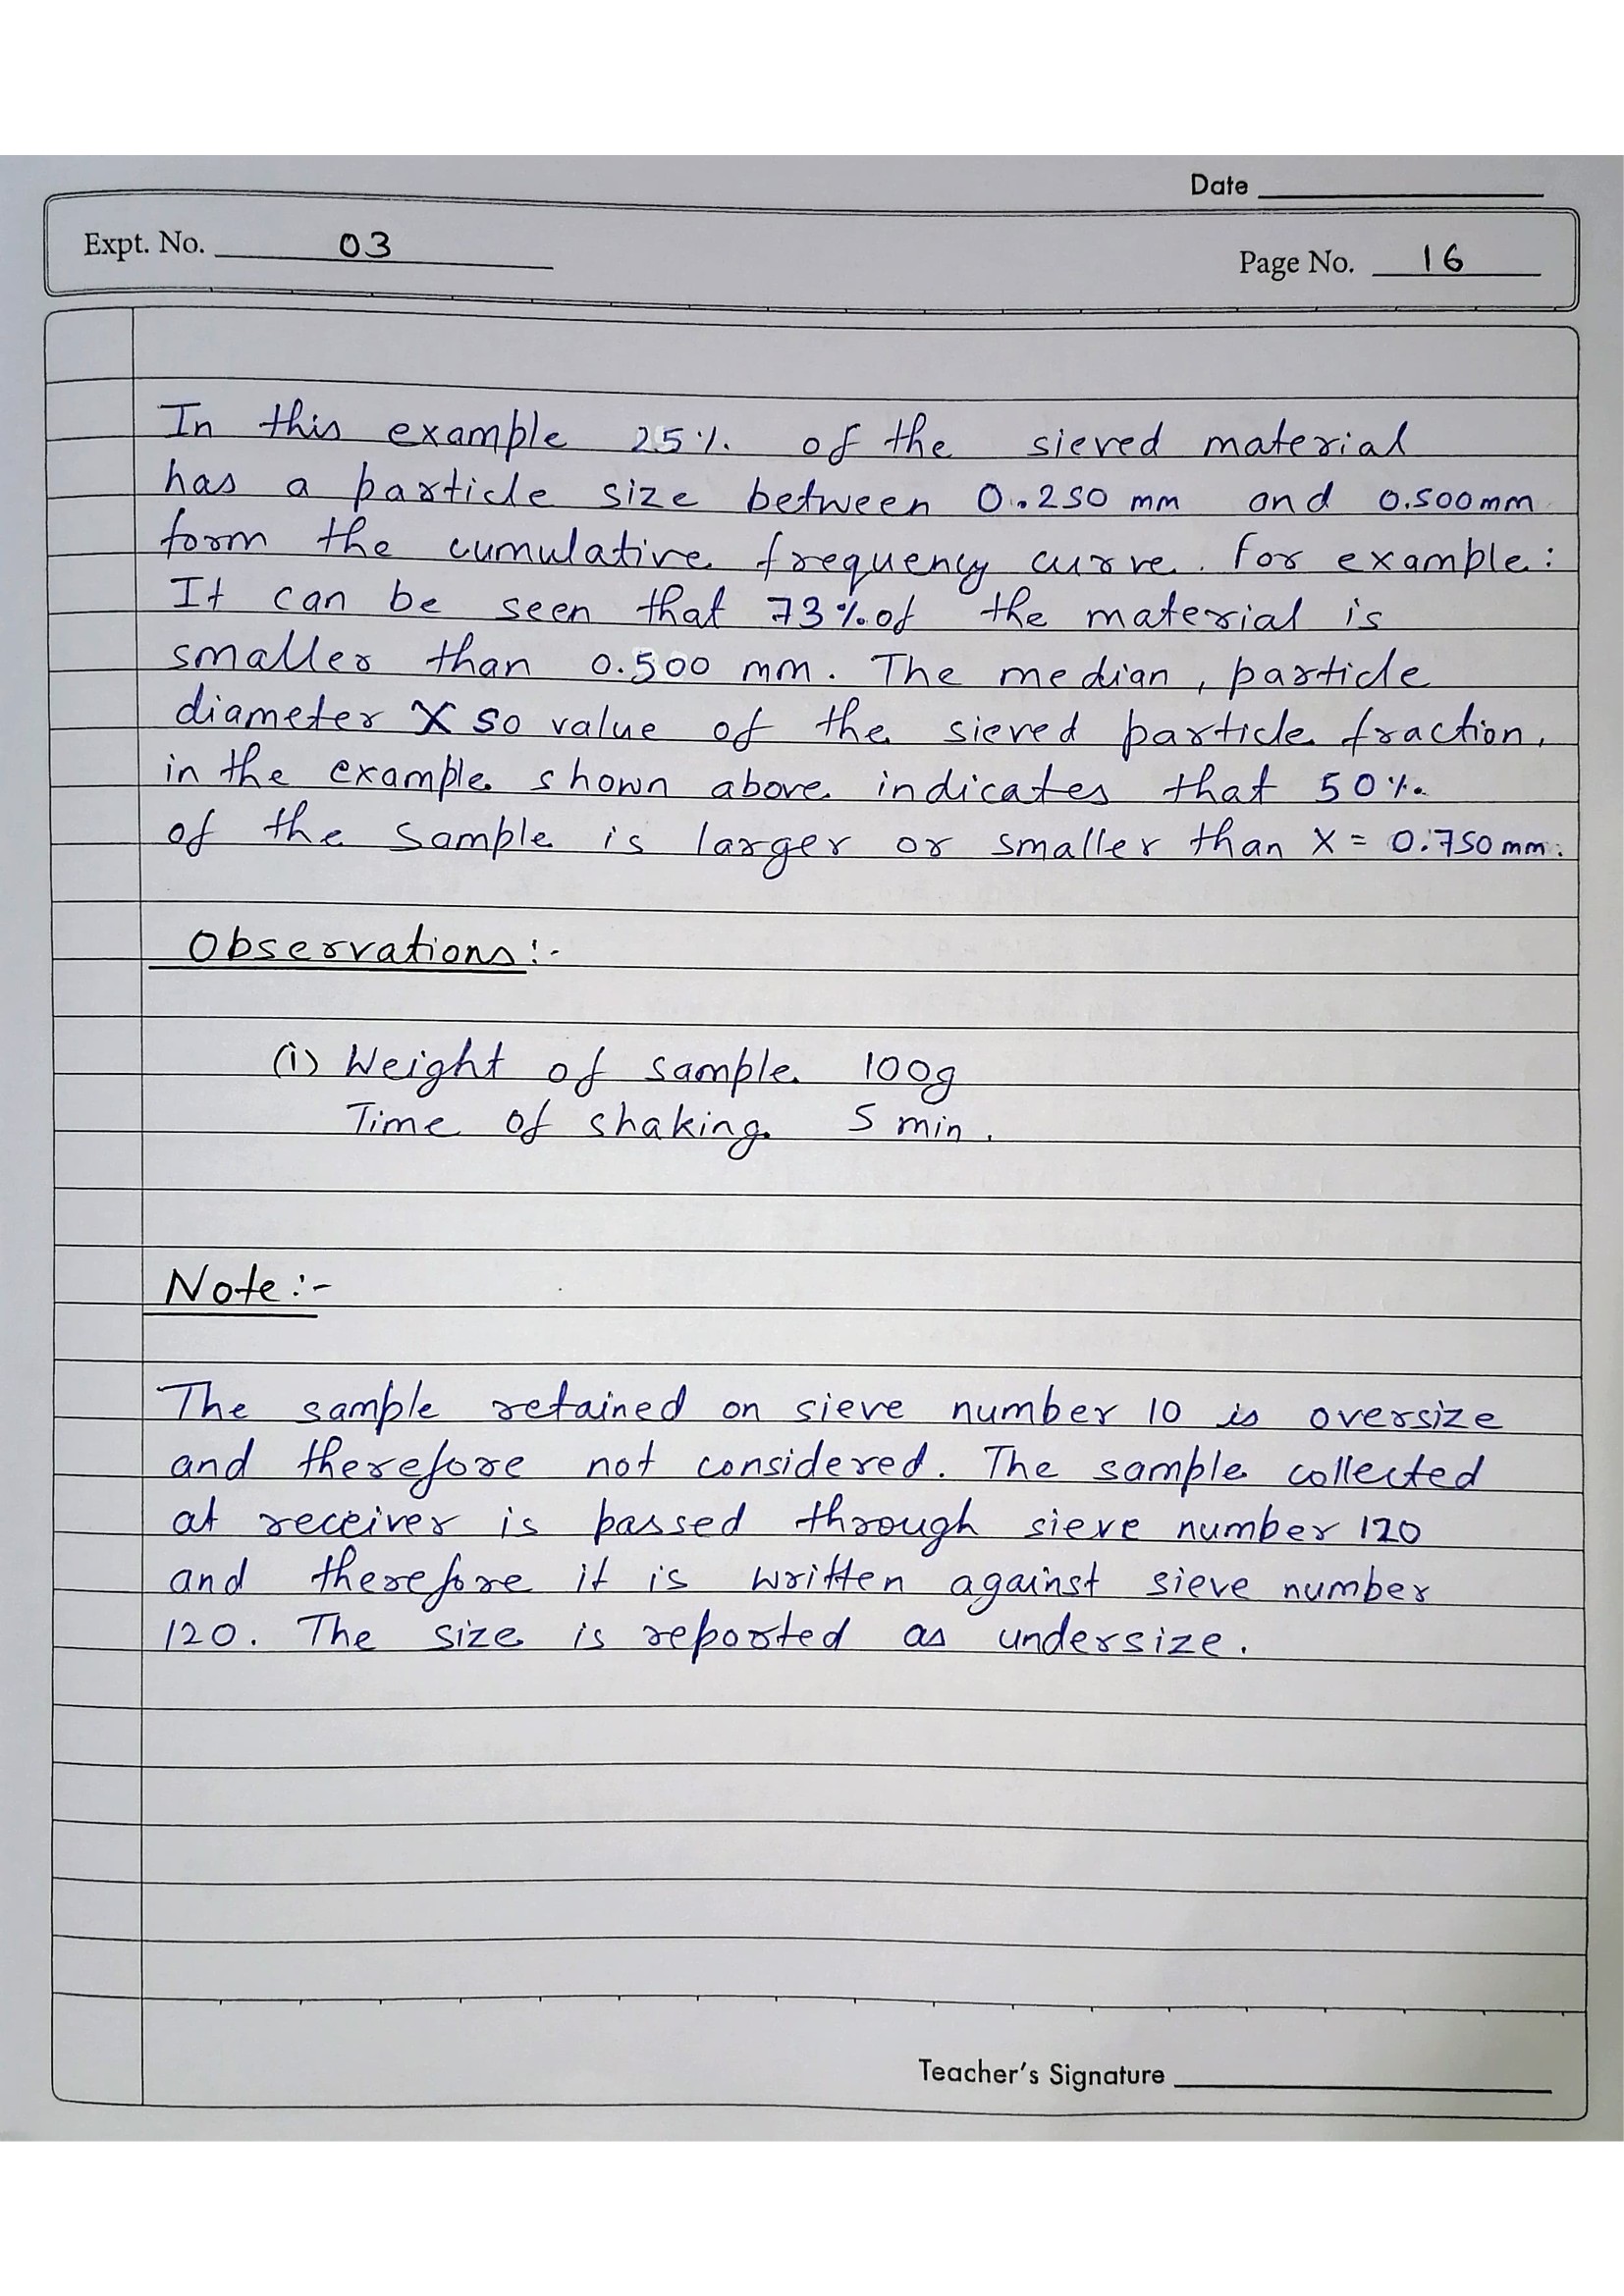 Date
Expt. No. 03
Page No. 16
In this example 25% of the sieved material
has a particle size between 0.250 mm and 0.500mm
form the cumulative frequency curve. For example:
It can be seen that 73% of the material is
smaller than 0.500 mm. The median, particle
diameter X50 value of the sieved particle fraction,
in the example shown above indicates that 50%
of the sample is larger or smaller than X = 0.750mm.
Observations:-
(i) Weight of sample 100g
Time of shaking 5 min.
Note:-
The sample retained on sieve number 10 is oversize
and therefore not considered. The sample collected
at receiver is passed through sieve number 120
and therefore it is written against sieve number
120. The size is reported as undersize.
Teacher's Signature